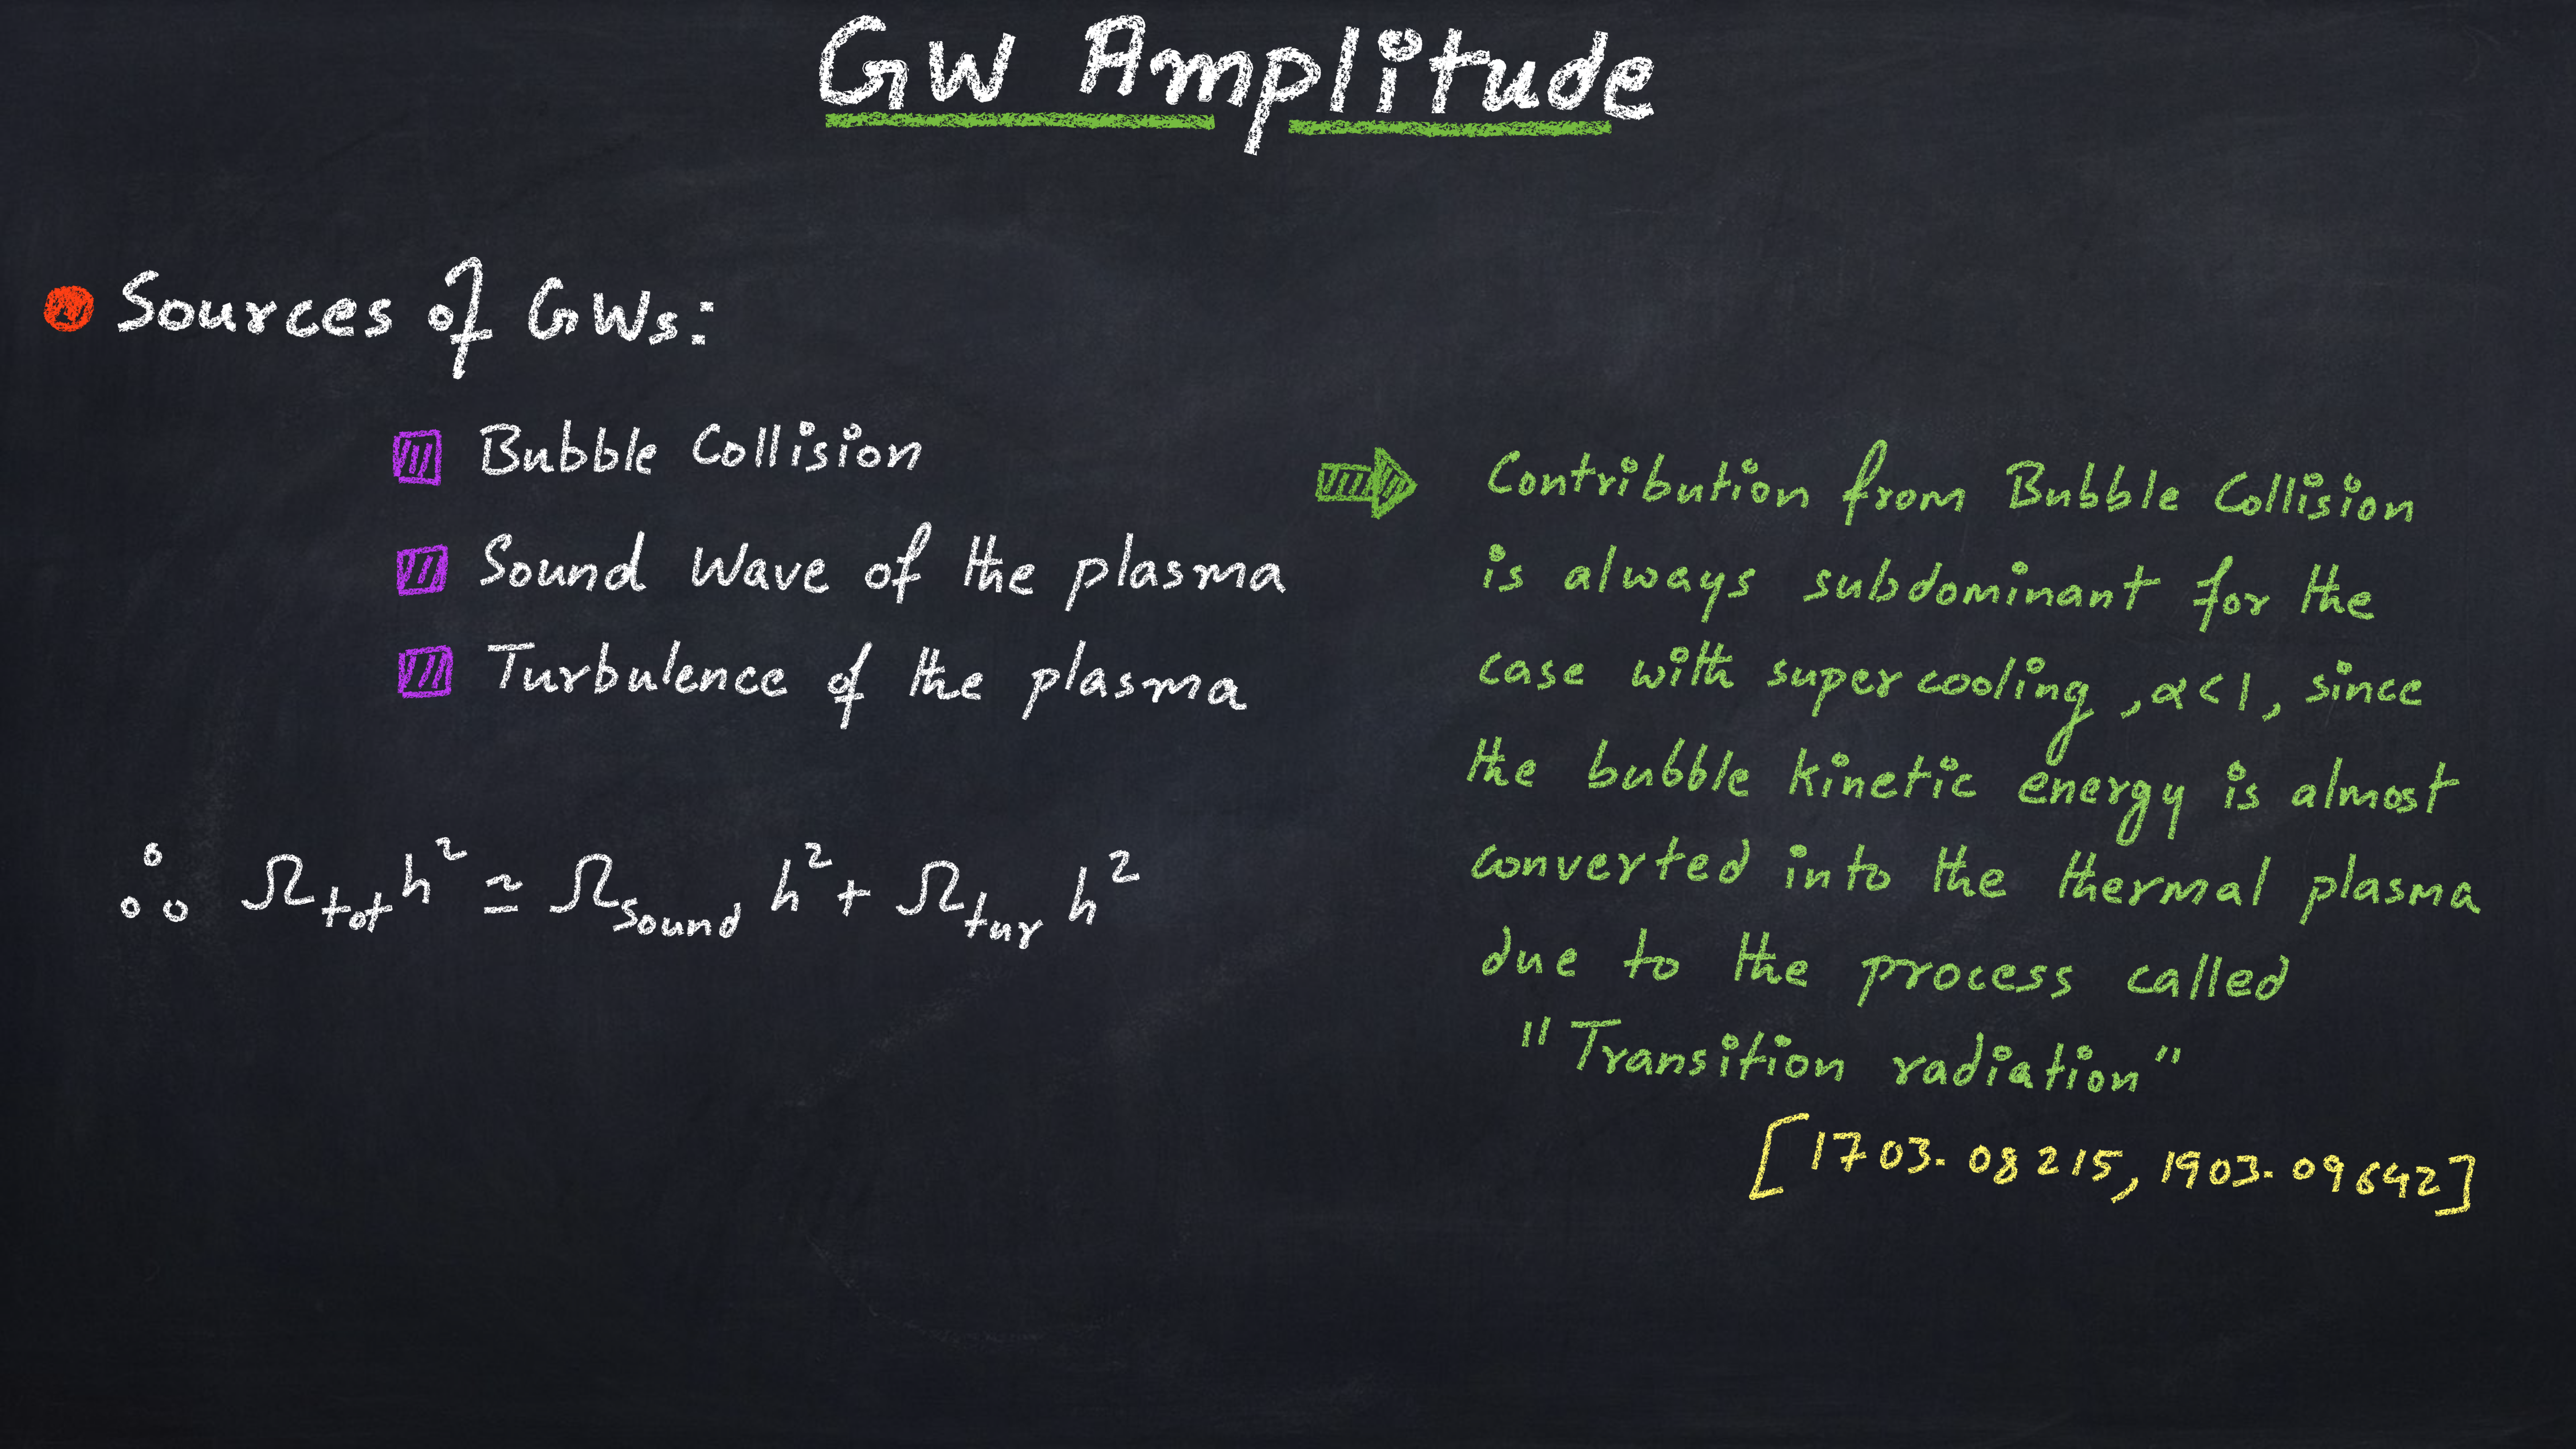 GW Amplitude
Sources of GWs:
Bubble Collision
Sound Wave of the plasma
Turbulence of the plasma
∴ Ω_tot h² ≃ Ω_sound h² + Ω_tur h²
Contribution from Bubble Collision
is always subdominant for the
case with supercooling, α<1, since
the bubble kinetic energy is almost
converted into the thermal plasma
due to the process called
"Transition radiation"
[1703.08215, 1903.09642]